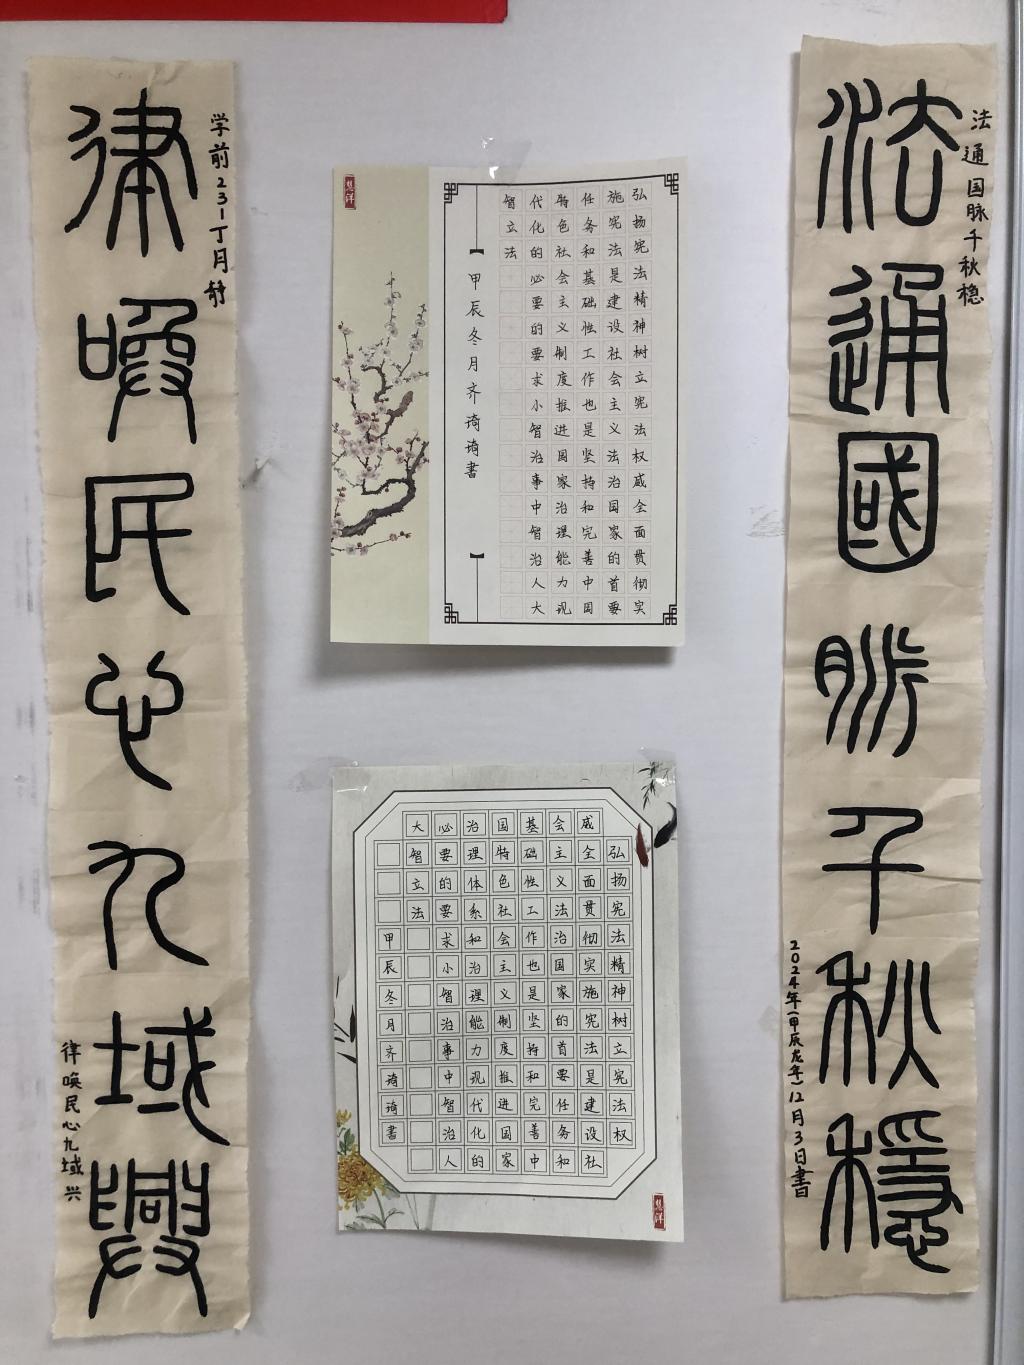 法通国脉千秋稳
法通國脈千秋穩
2024年(甲辰龙年)12月3日書
弘扬宪法精神树立宪法权威全面贯彻实
施宪法是建设社会主义法治国家的首要
任务和基础性工作也是坚持和完善中国
特色社会主义制度推进国家治理能力现
代化的必要的要求小智治事中智治人大
智立法
甲辰冬月齐琦琦書
慧洋
弘扬宪法精神树立宪法权
威全面贯彻实施宪法是建设社
会主义法治国家的首要任务和
基础性工作也是坚持和完善中
国特色社会主义制度推进国家
治理体系和治理能力现代化的
必要的要求小智治事中智治人
大智立法
甲辰冬月齐琦琦書
慧洋
学前231丁月静
律喚民心九域興
律唤民心九域兴